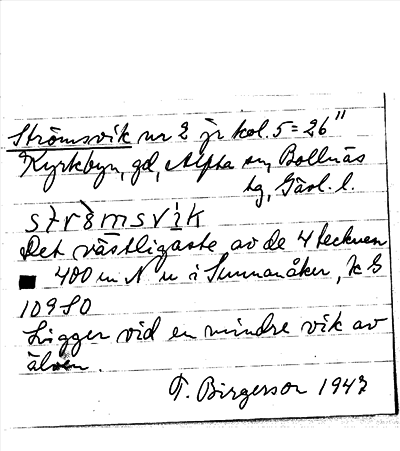 Strömsvik nr 2 jr kol. 5 = 26"
Kyrkbyn, gd, Alfta sn, Bollnäs
tg, Gävl. l.
strö̀msvìk
Det västligaste av de 4 tecknen
■ 400 m N n i Sunnanåker, K G
10980
Ligger vid en mindre vik av
älven.
T. Birgerson 1947